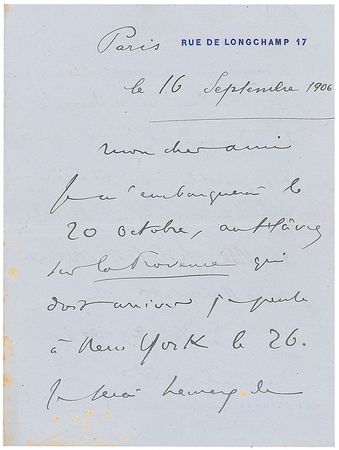 Paris RUE DE LONGCHAMP 17
le 16 Septembre 1906
mon cher ami
Je m'embarquerai le
20 octobre, au Hâvre
sur la Provence qui
doit arriver je pense
à New York le 26.
Je serai heureux de